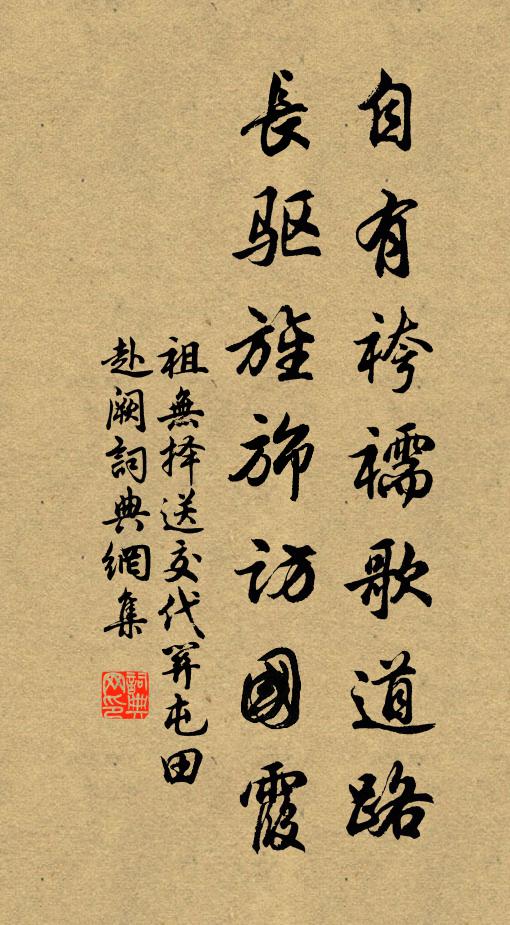 自有袴襦歌道路
長驱旌旆访國霞
祖無择送交代屯田
赴阙詞典網集
詞典网印